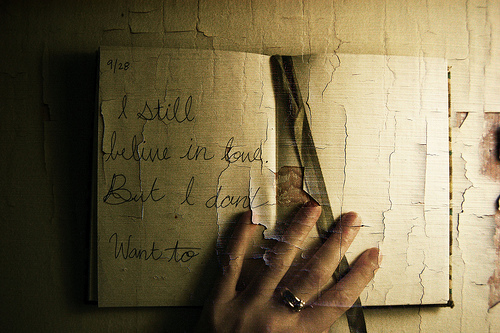 9/28
I still
belive in love.
But I dont
Want to